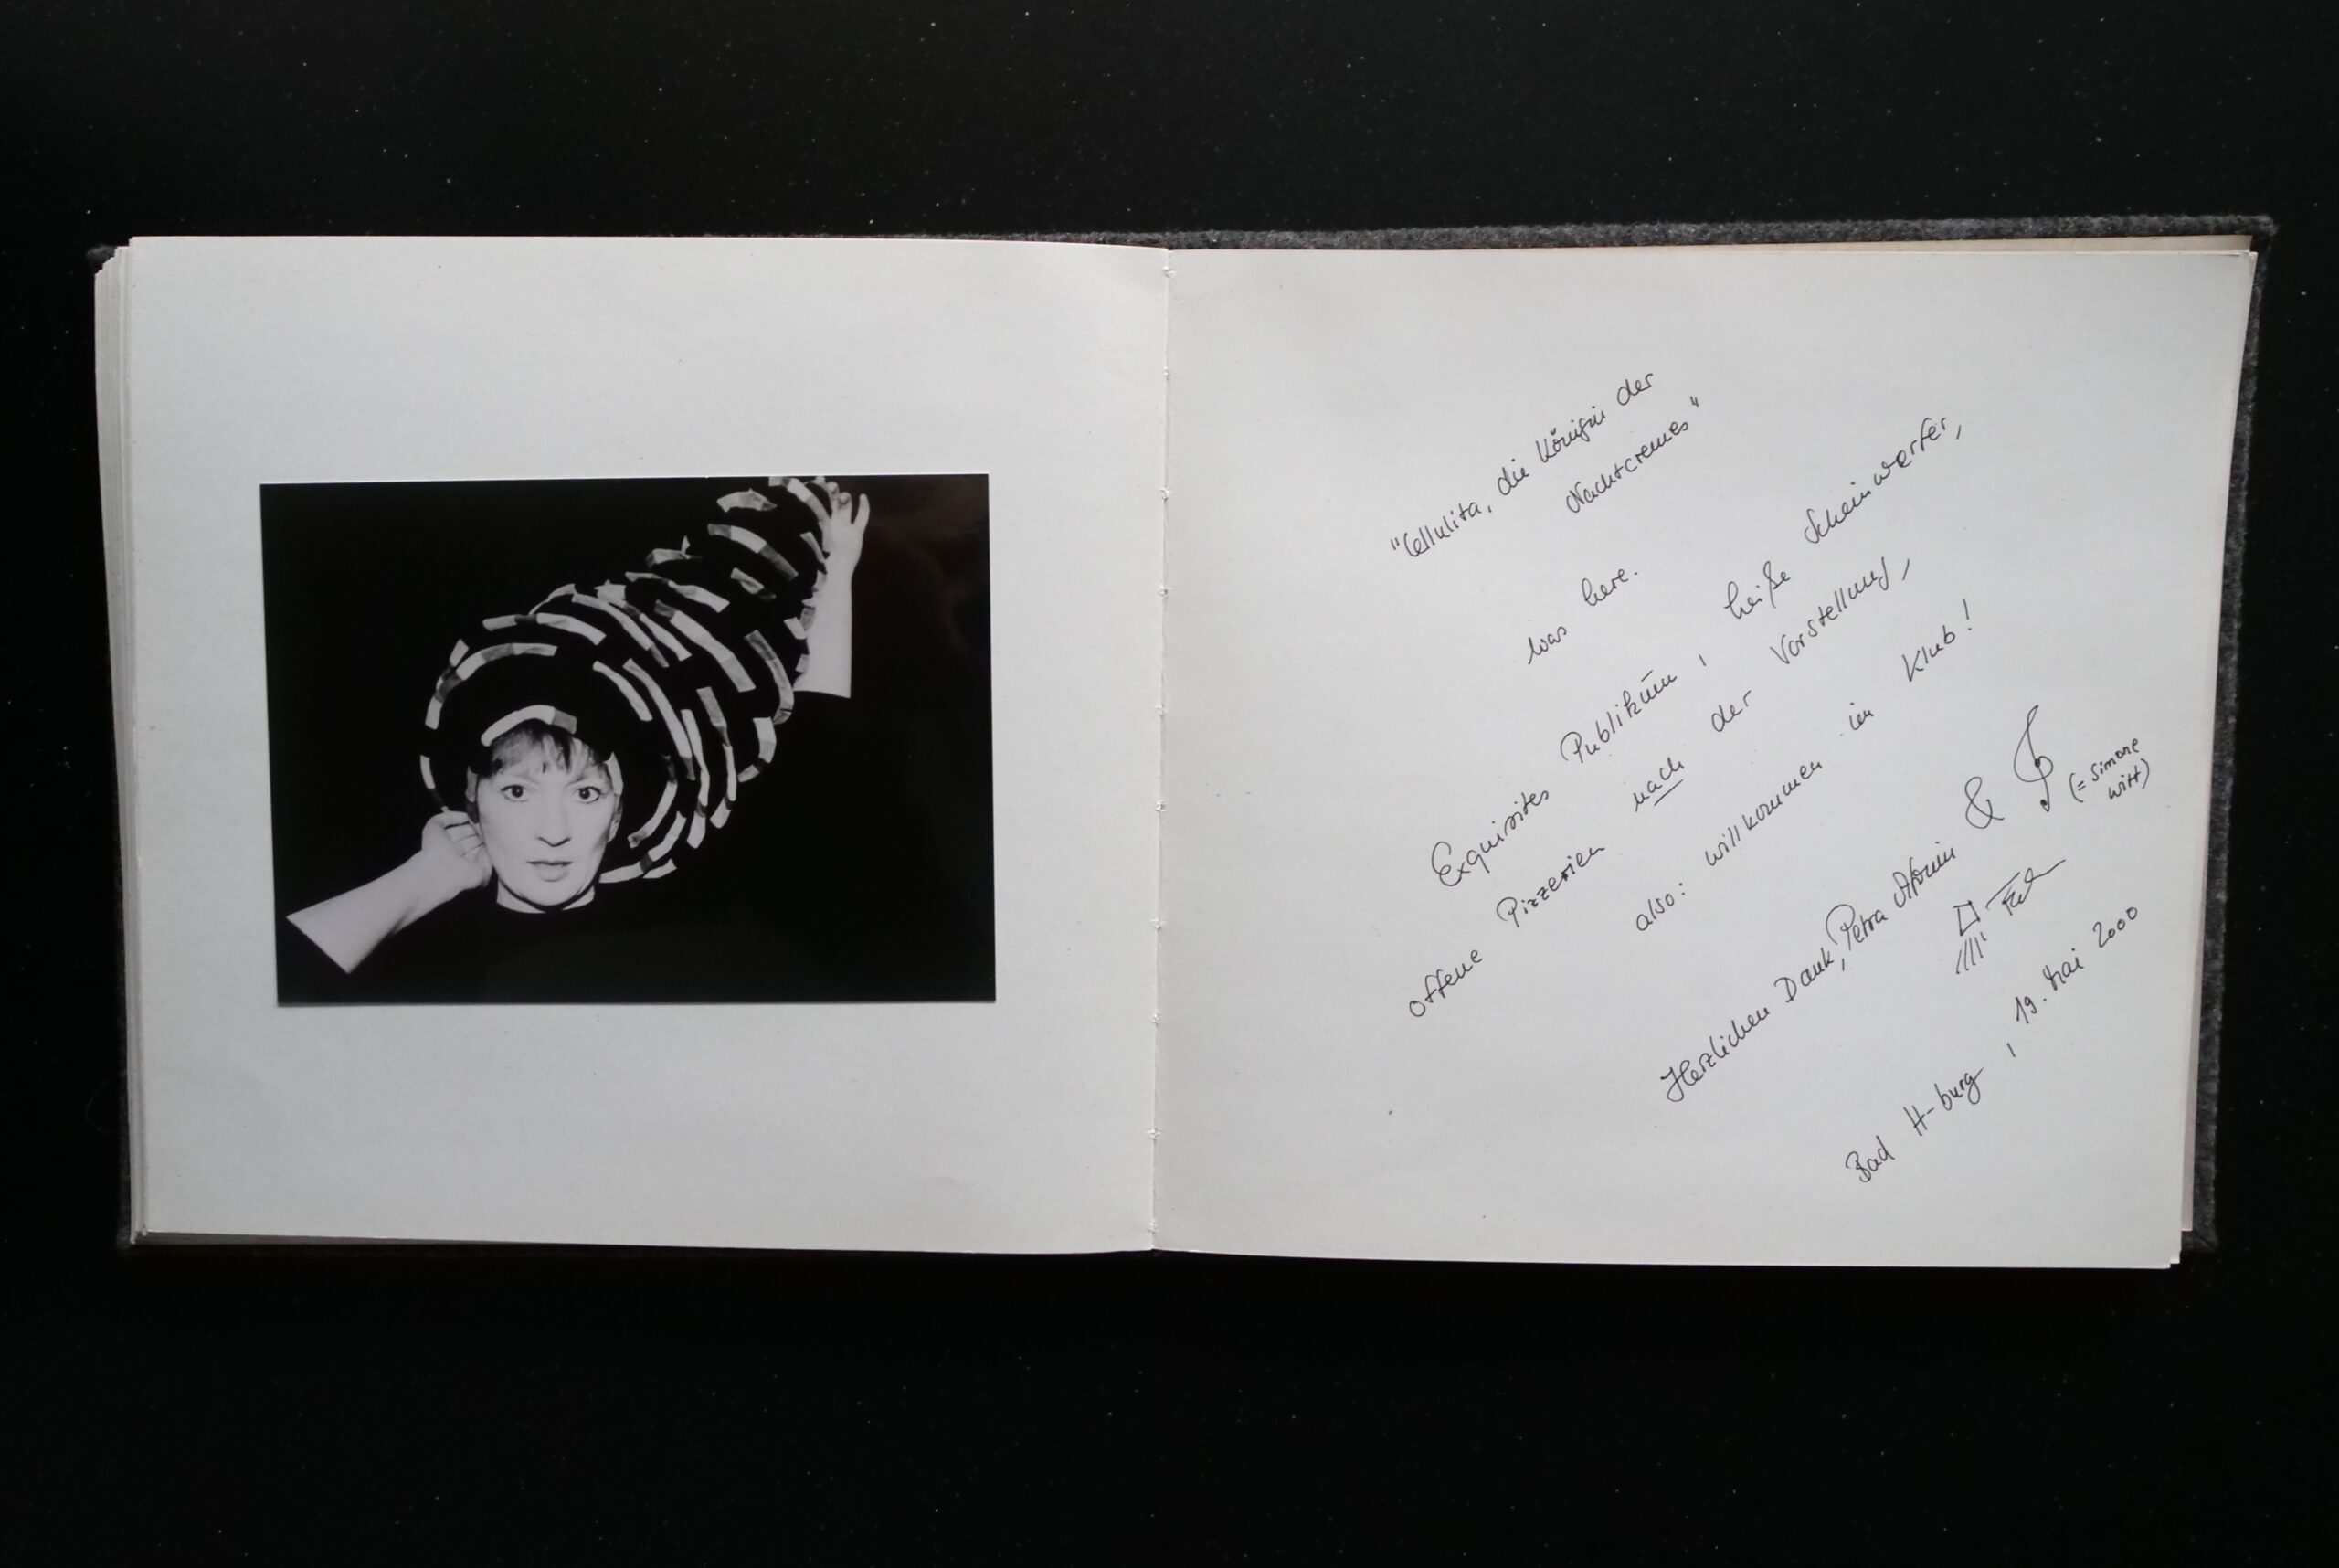 "Cellulita, die Königin der
Nachtcremes"
was here.
Exquisites Publikum, heiße Scheinwerfer,
offene Pizzerien nach der Vorstellung,
also: willkommen im Klub!
Herzlichen Dank, Petra &
(= Simone
Witt)
Bad H-burg, 19. Mai 2000